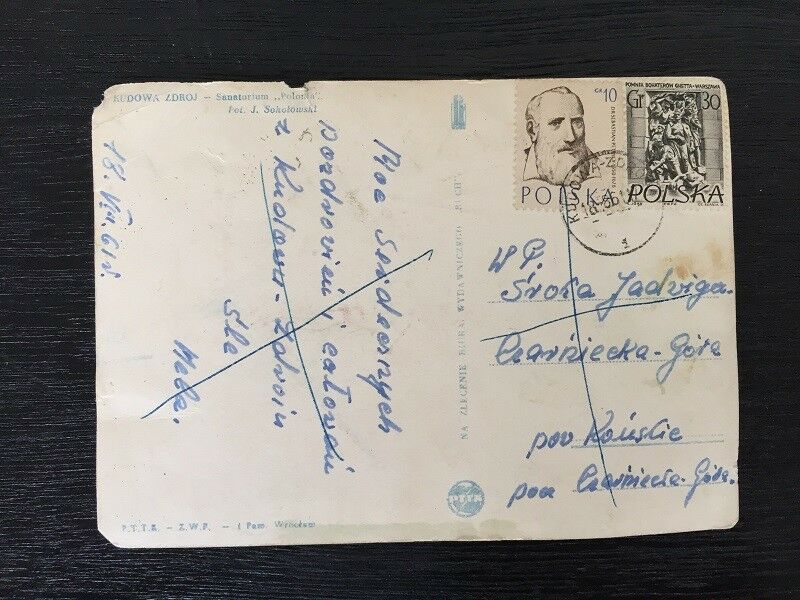 KUDOWA ZDRÓJ – Sanatorium „Polonia”
Fot. J. Sokołowski
18. VIII. 61 r.
Moc Serdecznych
Pozdrowień i całowań
z Kudowy-Zdroju
śle
Hela.
NA ZLECENIE BIURA WYDAWNICZEGO „RUCH”
PTTK
P.T.T.K. – Z.W.P. –
GR 10
POLSKA
POMNIK BOHATERÓW GHETTA - WARSZAWA
Gr 30
POLSKA
KUDOWA-ZD
W P.
Śroka Jadwiga.
Czarniecka-Góra
pow Końskie
pocz Czarniecka-Góra.